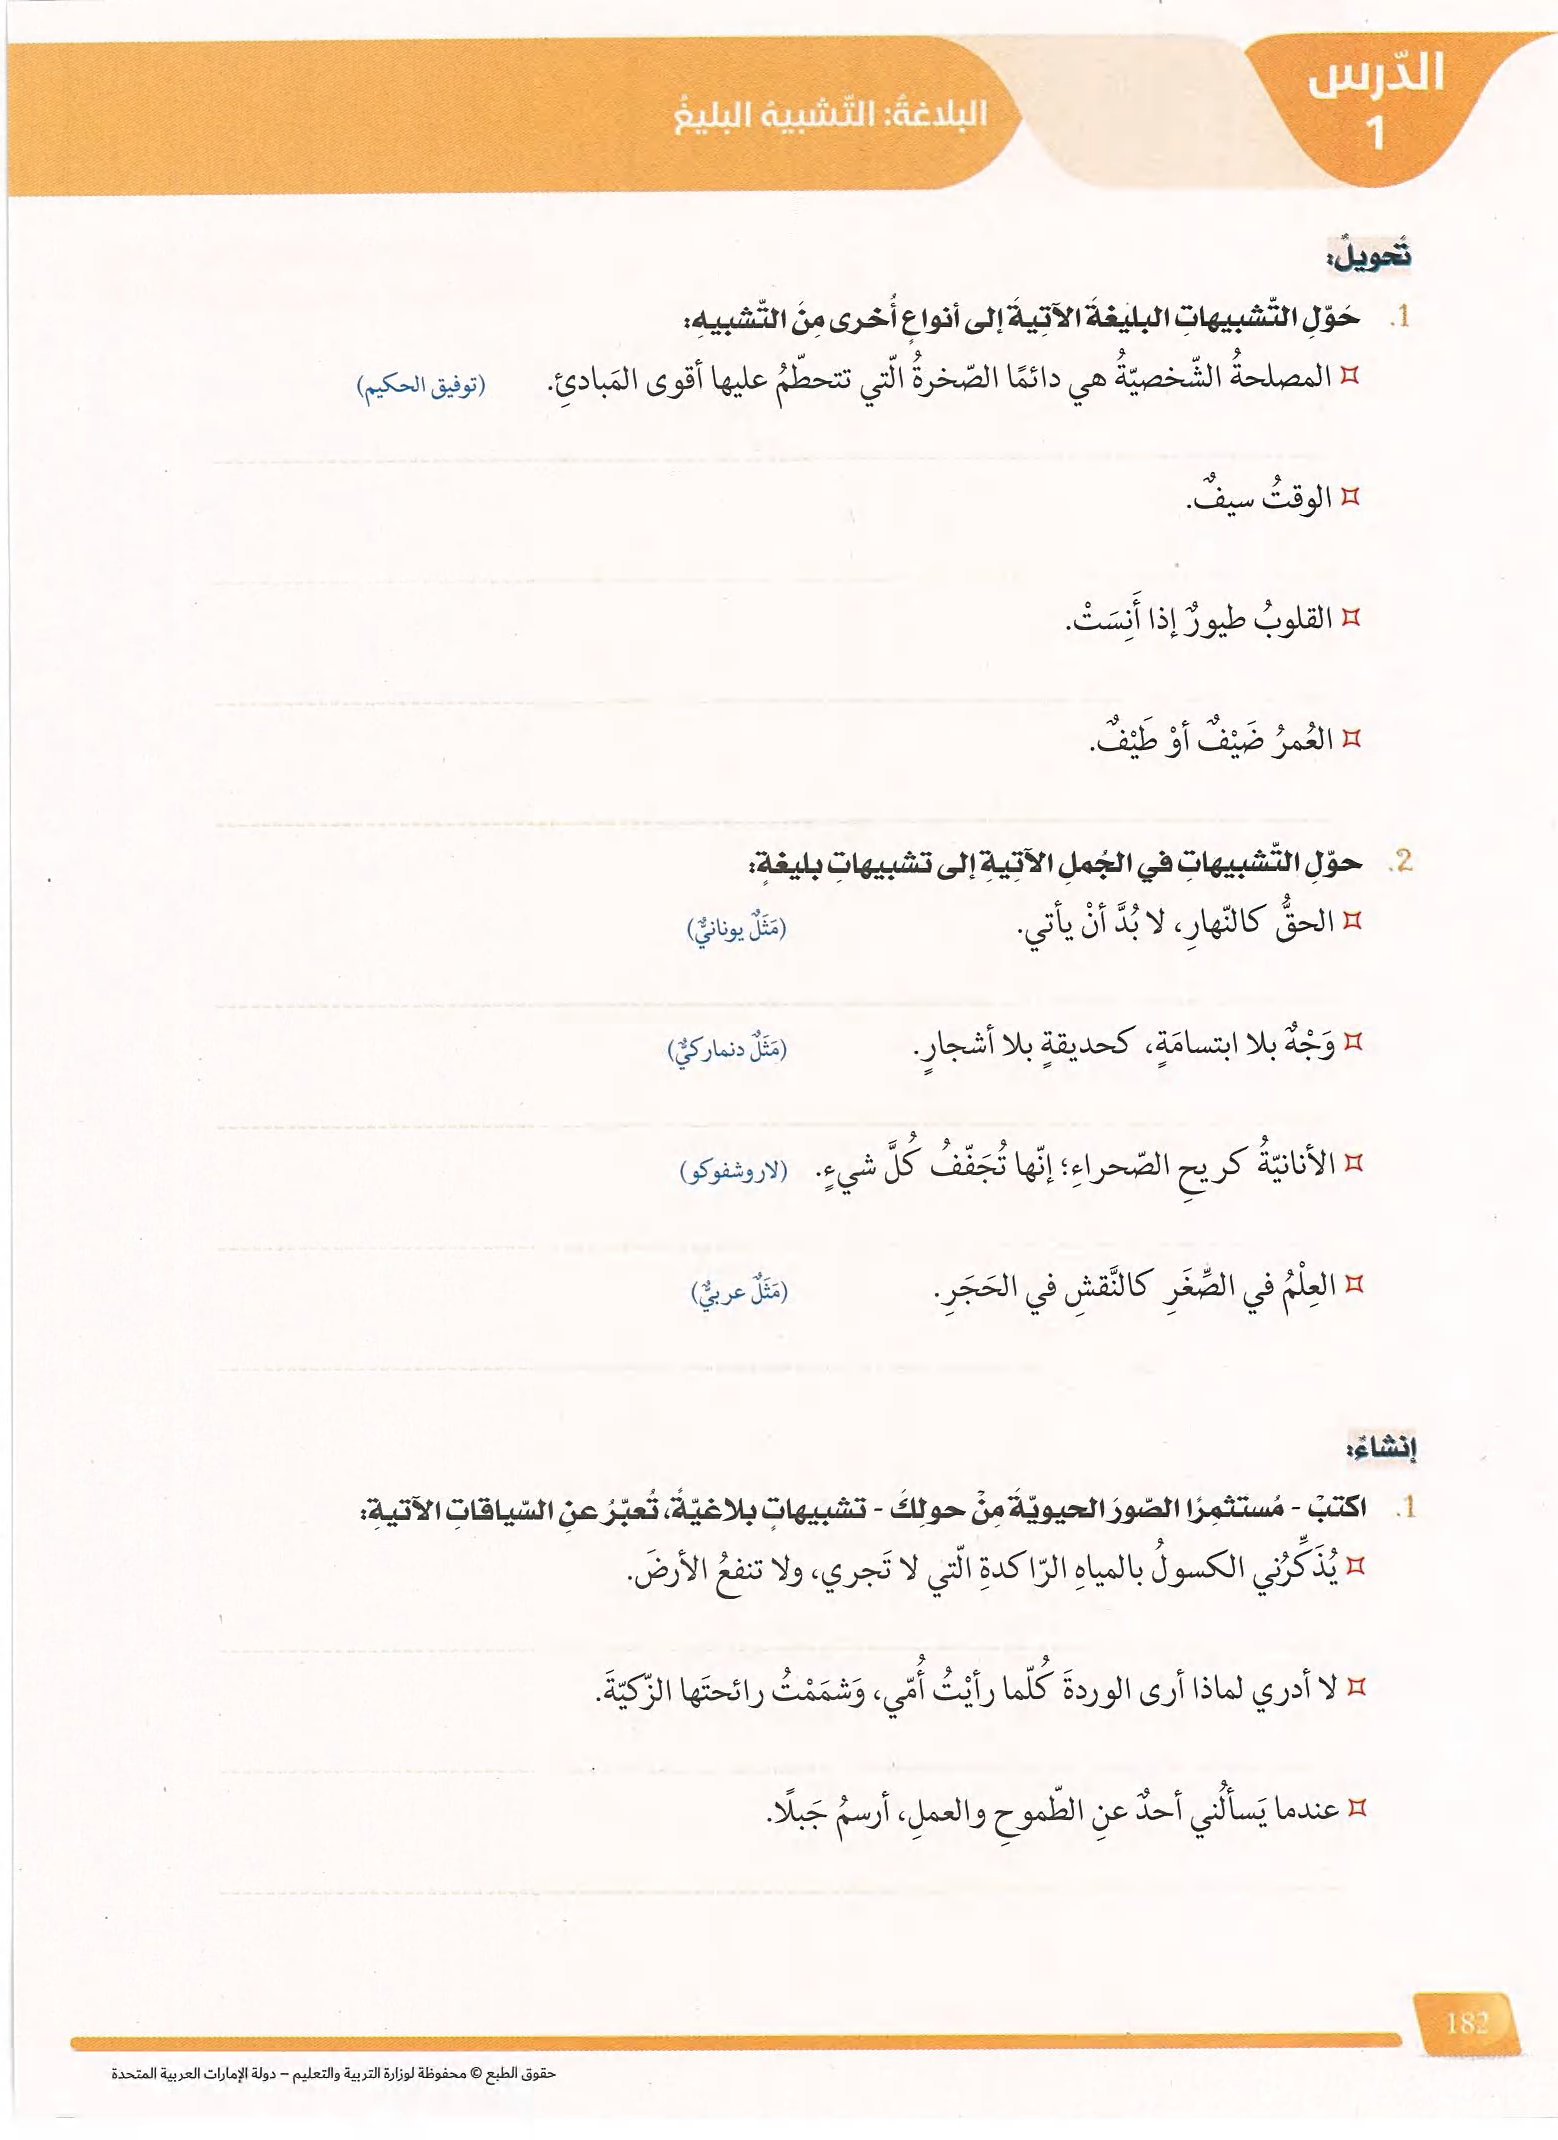 الدّرس
1
البلاغةُ: التّشبيهُ البليغُ
تَحويلٌ:
1. حَوّلِ التّشبيهاتِ البليغةَ الآتِيةَ إلى أنواعٍ أُخرى مِنَ التّشبيهِ:
¤ المصلحةُ الشّخصيّةُ هي دائمًا الصّخرةُ الّتي تتحطّمُ عليها أقوى المَبادئِ. (توفيق الحكيم)
¤ الوقتُ سيفٌ.
¤ القلوبُ طيورٌ إذا أَنِسَتْ.
¤ العُمرُ ضَيْفٌ أوْ طَيْفٌ.
2. حوّلِ التّشبيهاتِ في الجُملِ الآتِيةِ إلى تشبيهاتٍ بليغةٍ:
¤ الحقُّ كالنّهارِ، لا بُدَّ أنْ يأتي. (مَثَلٌ يونانيٌّ)
¤ وَجْهٌ بلا ابتسامَةٍ، كحديقةٍ بلا أشجارٍ. (مَثَلٌ دنماركيٌّ)
¤ الأنانيّةُ كريحِ الصّحراءِ؛ إنّها تُجَفّفُ كُلَّ شيءٍ. (لاروشفوكو)
¤ العِلْمُ في الصِّغَرِ كالنَّقشِ في الحَجَرِ. (مَثَلٌ عربيٌّ)
إنشاءٌ:
1. اكتبْ - مُستثمِرًا الصّورَ الحيويّةَ مِنْ حولِكَ - تشبيهاتٍ بلاغيّةً، تُعبّرُ عنِ السّياقاتِ الآتيةِ:
¤ يُذَكِّرُني الكسولُ بالمياهِ الرّاكدةِ الّتي لا تَجري، ولا تنفعُ الأرضَ.
¤ لا أدري لماذا أرى الوردةَ كُلّما رأيْتُ أُمّي، وَشمَمْتُ رائحتَها الزّكيّةَ.
¤ عندما يَسألُني أحدٌ عنِ الطّموحِ والعملِ، أرسمُ جَبلًا.
182
حقوق الطبع © محفوظة لوزارة التربية والتعليم – دولة الإمارات العربية المتحدة